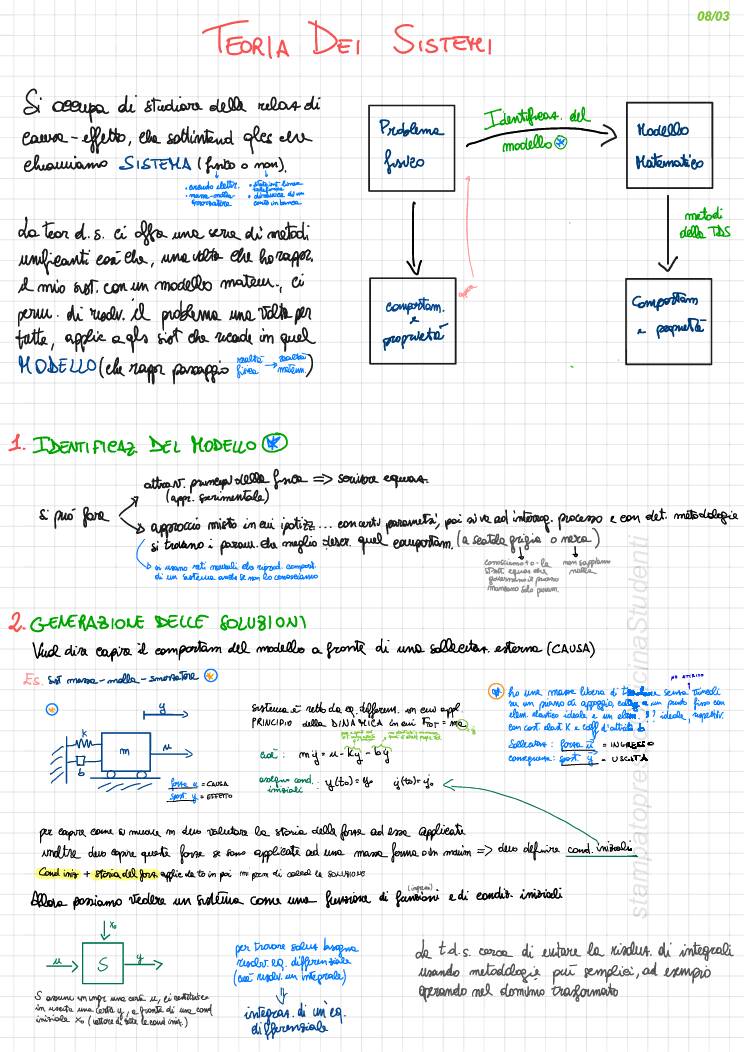 08/03
TEORIA DEI SISTEMI
Si occupa di studiare delle relaz di
causa-effetto, che sottintend qlcs che
chiamiamo SISTEMA (fisico o non).
• circuito elettr.
• massa-molla
smorzatore
• dinamica di un
conto in banca
La teor d. s. ci offre una serie di metodi
unificanti così che, una volta che ho rappr.
il mio sist. con un modello matem., ci
perm. di risolv. il problema una volta per
tutte, applic a qls sist che ricade in quel
MODELLO (che rappr passaggio realtà fisica → realtà matem.)
Problema
fisico
Identificaz. del
modello
Modello
Matematico
metodi
della TDS
comportam.
e
proprietà
Comportam
e proprietà
1. IDENTIFICAZ DEL MODELLO
si può fare
attrav. principi della fisica => scrivere equaz.
(appr. sperimentale)
approccio misto in cui ipotizz... con certi parametri, poi si va ad interrog. processo e con det. metodologie
si trovano i param. che meglio descr. quel comportam. (a scatola grigia o nera)
si usano reti neurali che riprod. comport.
di un sistema anche se non lo conosciamo
conosciamo + o - la
strutt equaz che
governano il processo
mancano solo param.
non sappiamo
nulla
2. GENERAZIONE DELLE SOLUZIONI
Vuol dire capire il comportam del modello a fronte di una sollecitaz. esterna (CAUSA)
Es. sist massa-molla-smorzatore
y
k
m
u
b
forza u = CAUSA
spost y = EFFETTO
sistema è retto da eq. differenz. in cui appl.
PRINCIPIO della DINAMICA in cui F_TOT = ma
cioè: mÿ = u - ky - bẏ
assegno cond.
iniziali: y(t₀) = y₀ ẏ(t₀) = ẏ₀
NO ATTRITO
ho una massa libera di senza vincoli
su un piano di appoggio, colleg a un punto fisso con
elem. elastico ideale e un elem. ideale, rispettiv.
con cost. elast K e coeff d'attrito b
Sollecitaz: forza u = INGRESSO
conseguenza: spost y = USCITA
per capire come si muove m devo valutare la storia delle forze ad essa applicate
inoltre devo capire queste forze se sono applicate ad una massa ferma o in movim => devo definire cond. iniziali
Cond iniz + storia del forz applic da t₀ in poi mi perm di calcol le SOLUZIONI
Allora possiamo vedere un sistema come una funzione di funzioni (ingressi) e di condiz. iniziali
x₀
u
S
y
S assume un ingr una certa u, ci restituisce
in uscita una certa y, a fronte di una cond
iniziale x₀ (vettore di tutte le cond iniz.)
per trovare soluz bisogna
risolv. eq. differenziale
(cioè risolv. un integrale)
integraz. di un'eq.
differenziale
La t.d.s. cerca di evitare la risoluz. di integrali
usando metodologie più semplici, ad esempio
operando nel dominio trasformato